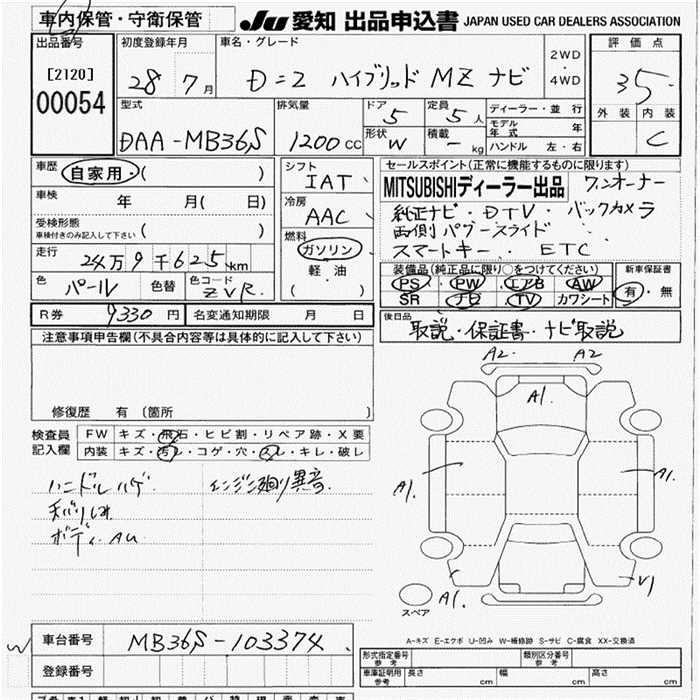 車内保管・守衛保管
JU 愛知 出品申込書 JAPAN USED CAR DEALERS ASSOCIATION
出品番号
[2120]
00054
初度登録年月
28年7月
車名・グレード
D=2 ハイブリッド MZ ナビ
2WD
・
4WD
評価点
3.5
外装 内装
C
型式
DAA-MB36S
排気量
1200 cc
ドア
5
定員
5人
形状
W
積載
- kg
ディーラー・並行
モデル年式 年
ハンドル 左・右
車歴
自家用・( )
車検
年 月( 日)
受検形態
車検付きのみ記入して下さい ( )
走行
24万9千625km
色
パール
色替
色コード
ZVR
シフト
IAT
冷房
AAC
燃料
ガソリン
軽・油
( )
セールスポイント(正常に機能するものに限ります)
MITSUBISHIディーラー出品 ワンオーナー
純正ナビ・DTV・バックカメラ
両側パワースライド
スマートキー・ETC
装備品(純正品に限り○をつけてください)
PS PW エアB AW
SR ナビ TV カワシート
新車保証書
有・無
R券 9330円
名変通知期限 月 日
後日品
取説・保証書・ナビ取説
注意事項申告欄(不具合内容等は具体的に記入して下さい)
修復歴 有 (箇所 )
検査員
記入欄
FW キズ・飛石・ヒビ割・リペア跡・X要
内装 キズ・汚レ・コゲ・穴・スレ・キレ・破レ
ハンドルハゲ
エンジン廻り異音
ボディAU
A2 A2
A1.
A1. A1.
A1.
スペア
A-キズ E-エクボ U-凹み W-補修跡 S-サビ C-腐食 XX-交換済
車台番号
MB36S-103374
登録番号
形式指定番号
参考
類別区分番号
参考
車庫証明用
参考
長さ cm 幅 cm 高さ cm